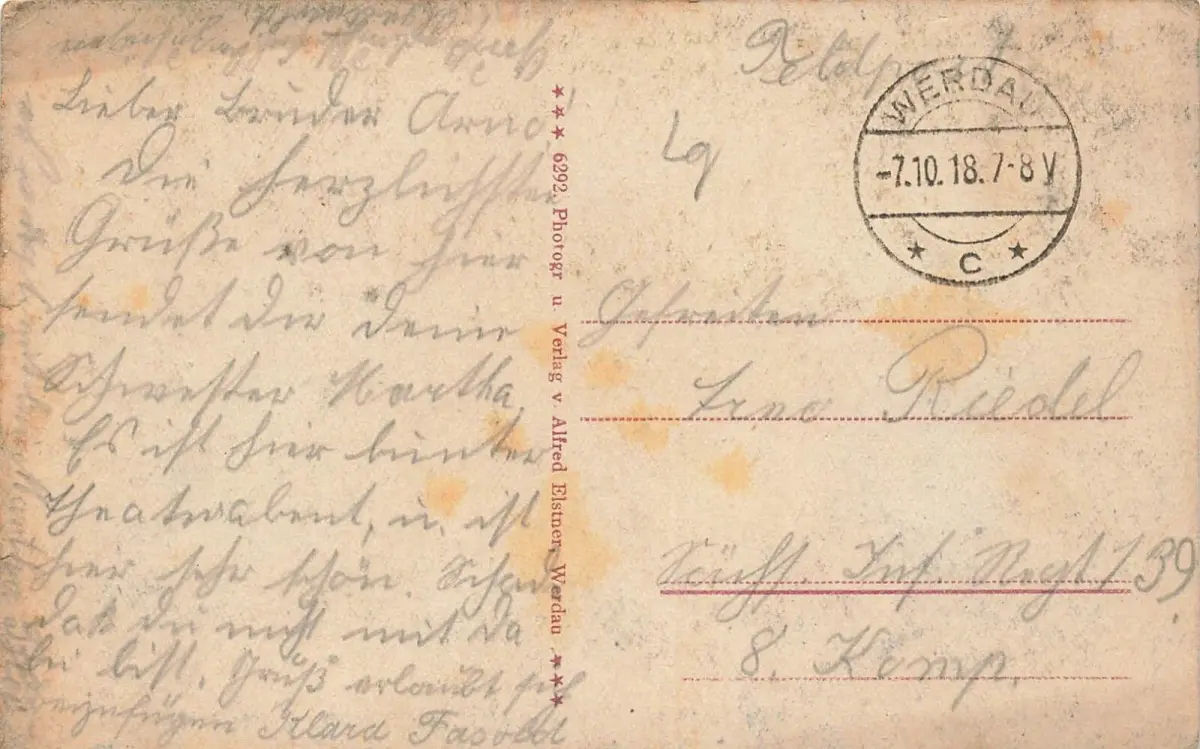 Lieber Bruder Arno!
Die herzlichsten
Grüße von hier
sendet dir deine
Schwester Martha.
Es ist hier bunter
Theaterabent, u. ist
hier sehr schön. Schad
daß du nicht mit da
bei bist. Gruß erlaubt sich
beizufügen Klara Fasold
★ ★ ★ 6292. Photogr u. Verlag v. Alfred Elstner, Werdau ★ ★ ★
Feldpost
WERDAU
-7.10.18.7-8 V
★ C ★
Gefreiten
Arno Riedel
Sächs. Inf. Regt. 139
8. Komp.